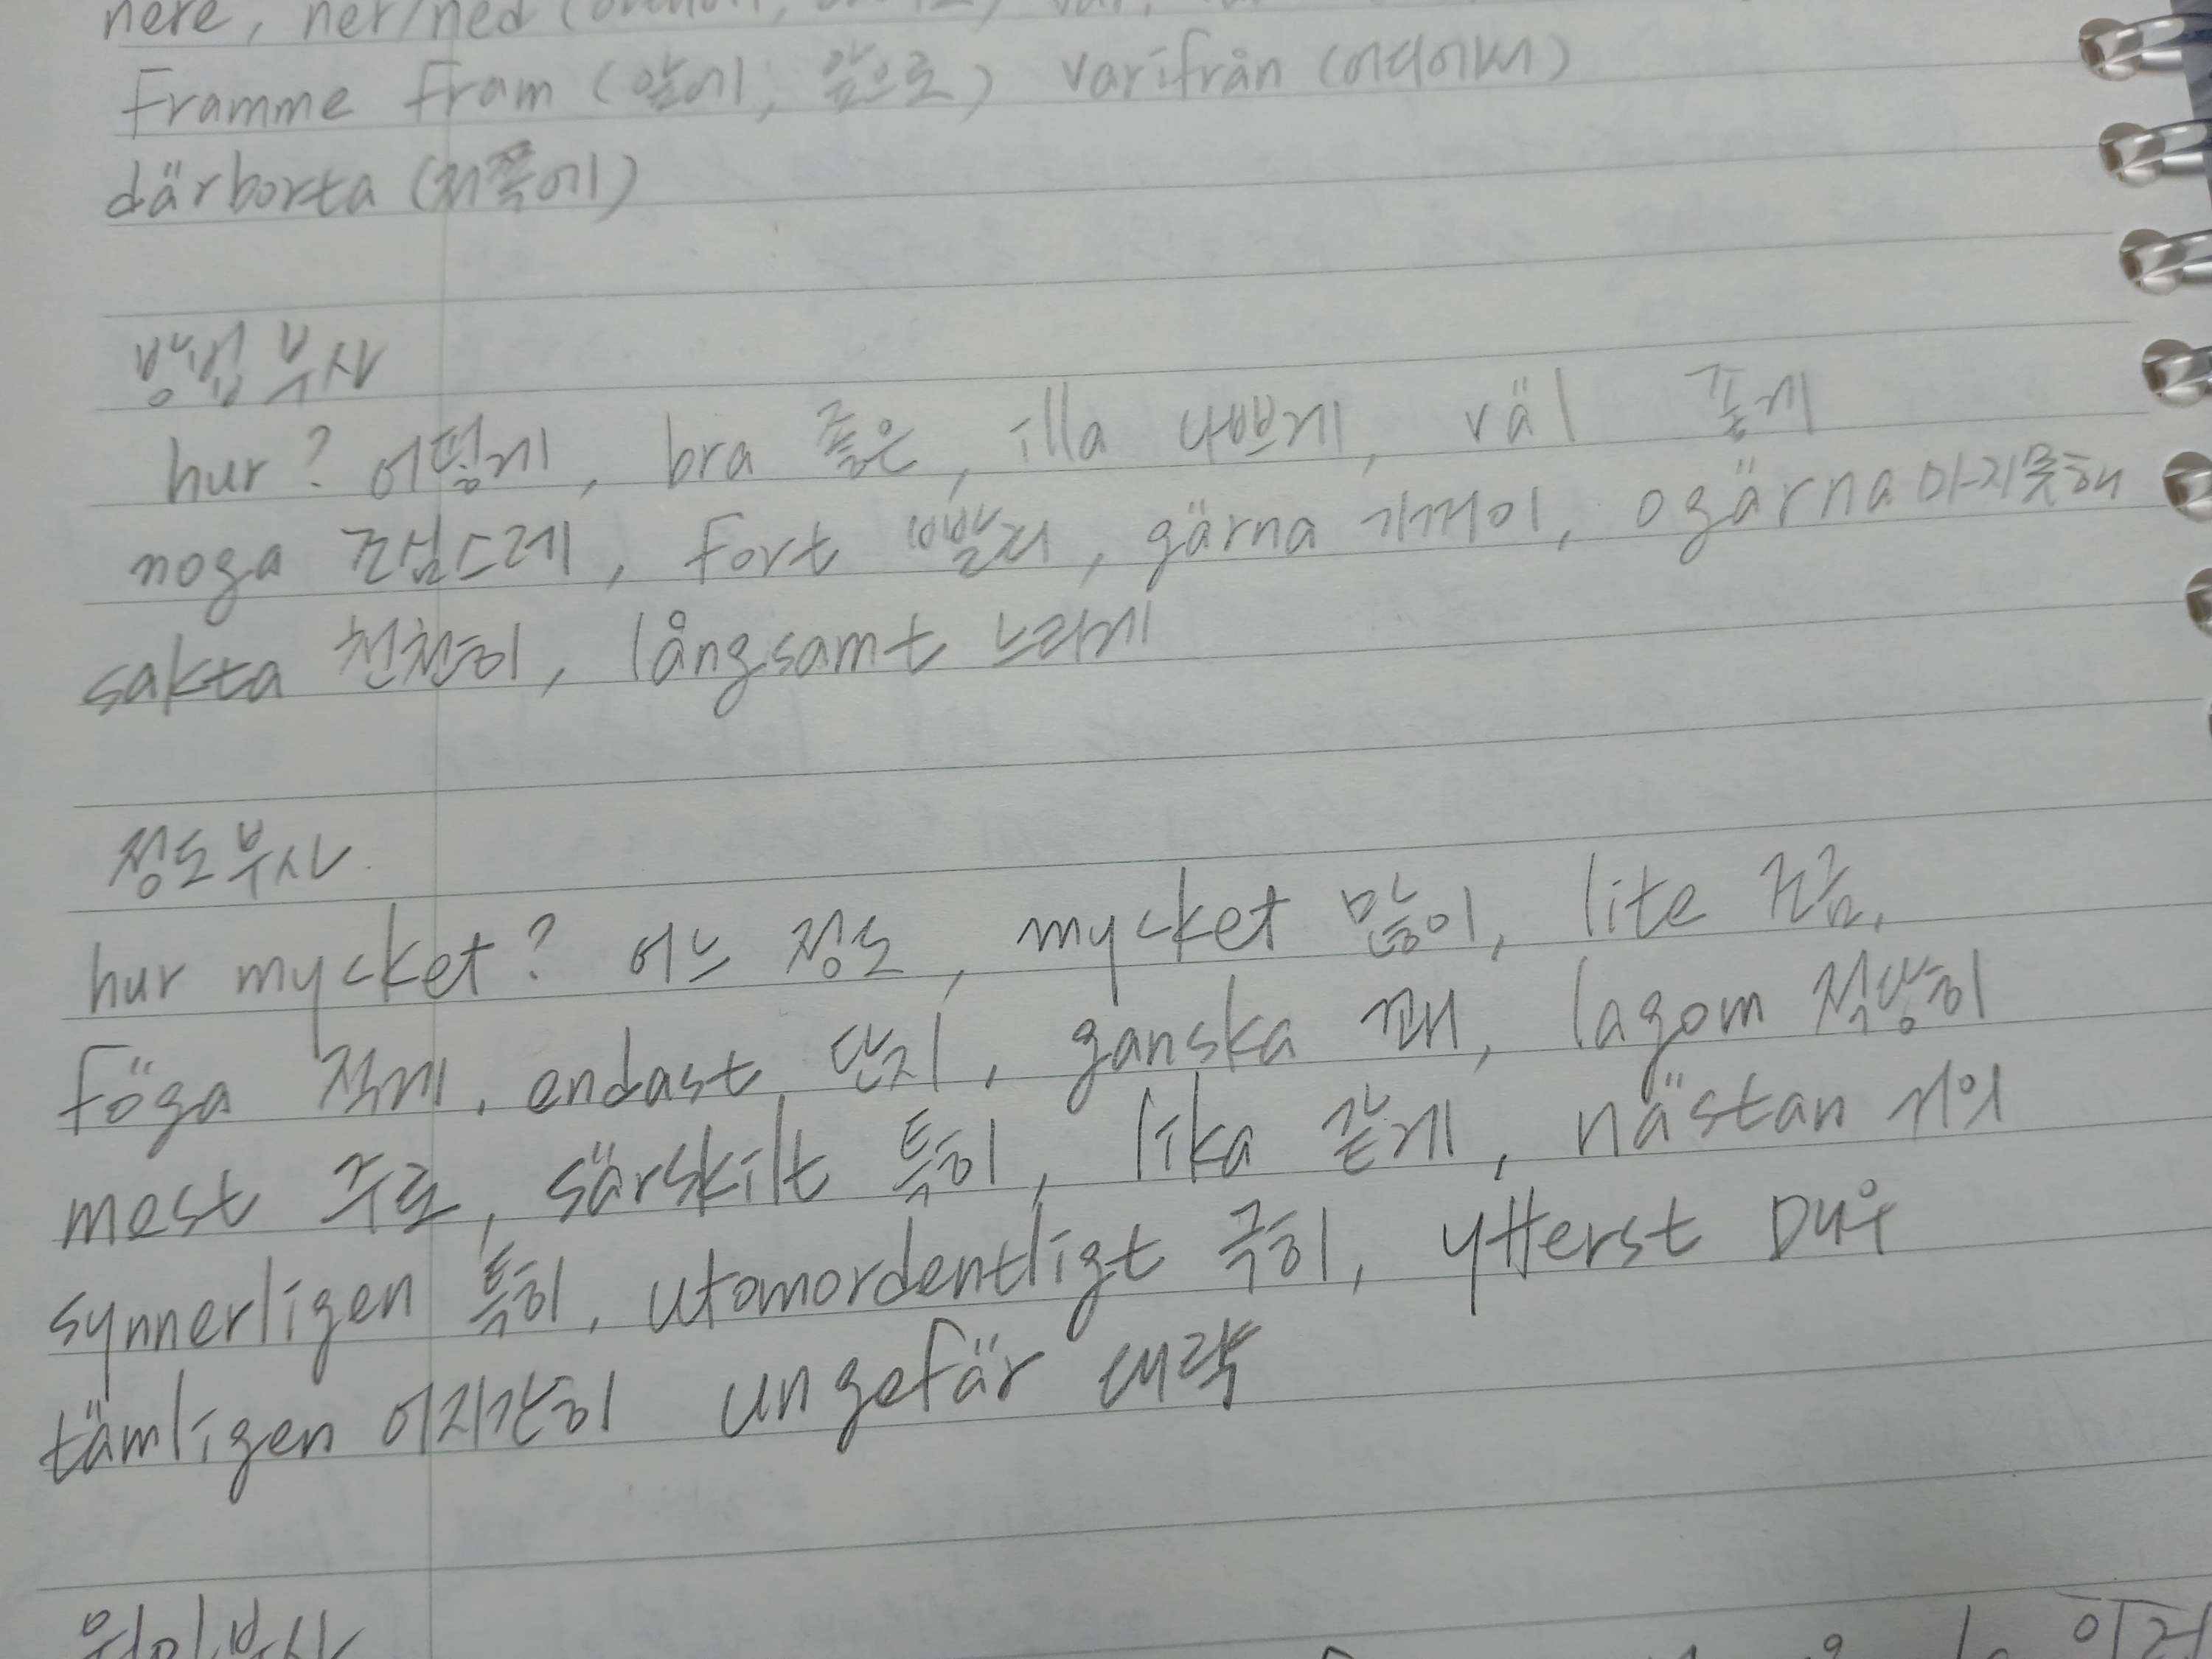 nere, ner/ned
framme fram (앞에, 앞으로) varifrån (어디에서)
därborta (저쪽에)
방법 부사
hur? 어떻게, bra 좋은, illa 나쁘게, väl 좋게
noga 조심스레, fort 빨리, gärna 기꺼이, ogärna 마지못해
sakta 천천히, långsamt 느리게
정도부사
hur mycket? 어느 정도, mycket 많이, lite 조금,
föga 적게, endast 단지, ganska 꽤, lagom 적당히
mest 주로, särskilt 특히, lika 같게, nästan 거의
synnerligen 특히, utomordentligt 극히, ytterst 매우
tämligen 어지간히 ungefär 대략